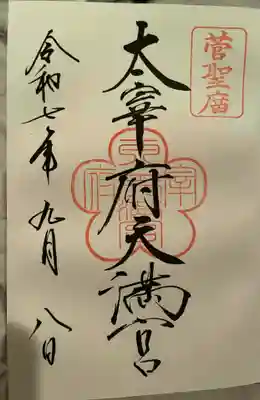 菅聖庿
太宰府天満宮
令和七年九月八日